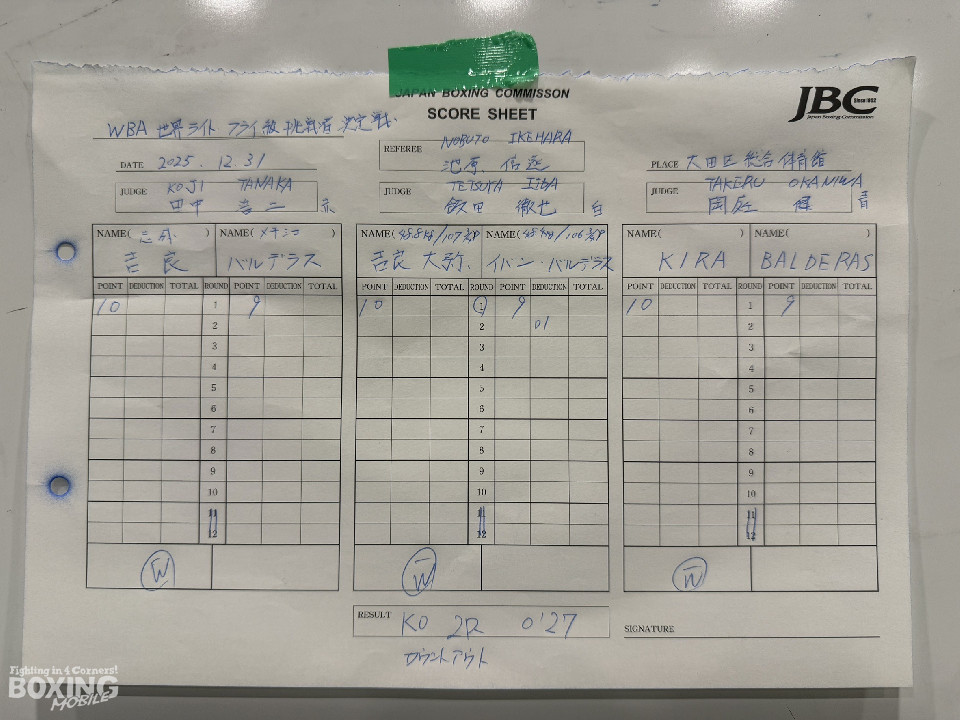 JAPAN BOXING COMMISSON
SCORE SHEET
JBC Since 1952
Japan Boxing Commission
WBA 世界ライトフライ級挑戦者決定戦
REFEREE NOBUTO IKEHARA
池原 信遂
DATE 2025. 12. 31
PLACE 大田区総合体育館
JUDGE KOJI TANAKA
田中 浩二 赤
JUDGE TETSUYA IIDA
飯田 徹也 白
JUDGE TAKERU OKANIWA
岡庭 健 青
NAME( 志成 ) NAME( メキシコ ) NAME( 48.8kg/107 3/4P NAME( 48.4kg/106 3/4P NAME( ) NAME( )
吉良 バルデラス 吉良 大弥 イバン・バルデラス KIRA BALDERAS
POINT DEDUCTION TOTAL ROUND POINT DEDUCTION TOTAL POINT DEDUCTION TOTAL ROUND POINT DEDUCTION TOTAL POINT DEDUCTION TOTAL ROUND POINT DEDUCTION TOTAL
10 1 9 10 1 9 10 1 9
2 2 D1 2
3 3 3
4 4 4
5 5 5
6 6 6
7 7 7
8 8 8
9 9 9
10 10 10
11 11 11
12 12 12
W W W
RESULT KO 2R 0'27
カウントアウト
SIGNATURE
Fighting in 4 Corners!
BOXING
MOBILE